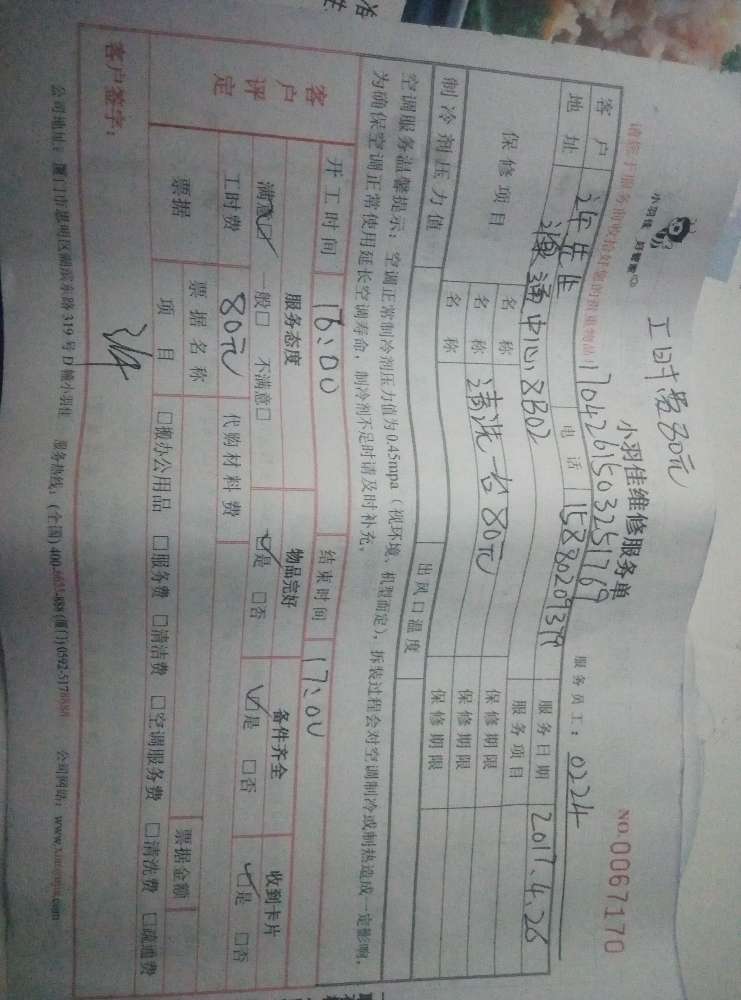 工时费80元
小羽佳 月管家
小羽佳维修服务单
NO.0067170
请您于服务前收拾好您的贵重物品!
17042615032517 69
服务员工: 0224
客户 许先生 电话 15880209379 服务日期 2017.4.26
地址 湖通中心8B02 服务项目
保修项目 名称 保修期限
名称 清洗一台80元 保修期限
名称 保修期限
制冷剂压力值 出风口温度
空调服务温馨提示:空调正常制冷剂压力值为0.45mpa(视环境、机型而定),拆装过程会对空调制冷或制热造成一定影响,
为确保空调正常使用延长空调寿命,制冷剂不足时请及时补充。
开工时间 16:00 结束时间 17:00
客户评定 服务态度 物品完好 备件齐全 收到卡片
满意☑ 一般□ 不满意□ ☑是 □否 ☑是 □否 ☑是 □否
工时费 80元 代购材料费
票据 票据名称 票据金额
项目 □搬办公用品 □服务费 □清洁费 □空调服务费 □清洗费 □疏通费
客户签字:
公司地址:厦门市思明区湖滨东路319号D幢小羽佳 服务热线:(全国)400-6633-888 (厦门)0592-5178888 公司网站:www.xiaoyujia.com